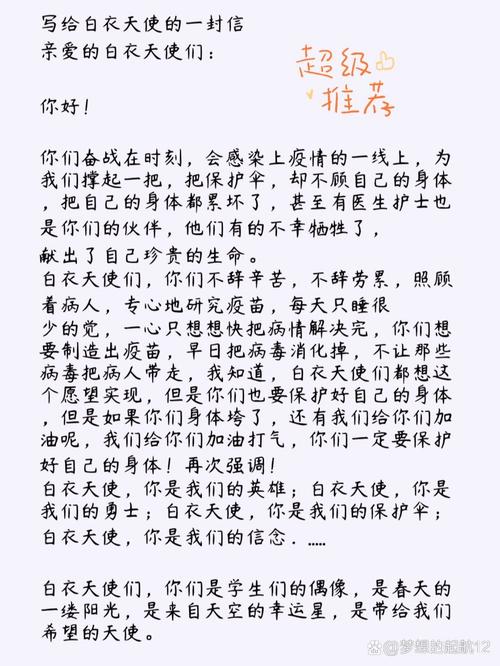 写给白衣天使的一封信
亲爱的白衣天使们：
超级
推荐
你好！
你们奋战在时刻，会感染上疫情的一线上，为
我们撑起一把，把保护伞，却不顾自己的身体
，把自己的身体都累坏了，甚至有医生护士也
是你们的伙伴，他们有的不幸牺牲了，
献出了自己珍贵的生命。
白衣天使们，你们不辞辛苦，不辞劳累，照顾
着病人，专心地研究疫苗，每天只睡很
少的觉，一心只想想快把病情解决完，你们想
要制造出疫苗，早日把病毒消化掉，不让那些
病毒把病人带走，我知道，白衣天使们都想这
个愿望实现，但是你们也要保护好自己的身体
，但是如果你们身体垮了，还有我们给你们加
油呢，我们给你们加油打气，你们一定要保护
好自己的身体！再次强调！
白衣天使，你是我们的英雄；白衣天使，你是
我们的勇士；白衣天使，你是我们的保护伞；
白衣天使，你是我们的信念．．．．．
白衣天使们，你们是学生们的偶像，是春天的
一缕阳光，是来自天空的幸运星，是带给我们
希望的天使。
@梦想的起航12